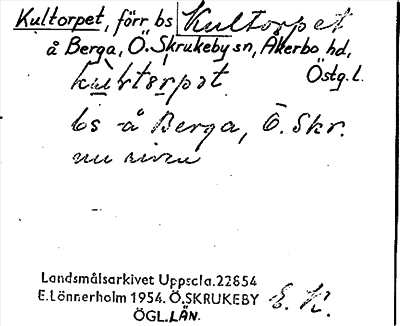 Kultorpet, förr bs Kultorpet
å Berga, Ö. Skrukeby sn, Åkerbo hd,
Östg.l.
bs å Berga, Ö. Skr.
nu riven
Landsmålsarkivet Uppsala. 22854
E. Lönnerholm 1954. Ö. SKRUKEBY
ÖGL. LÄN.
E. K.